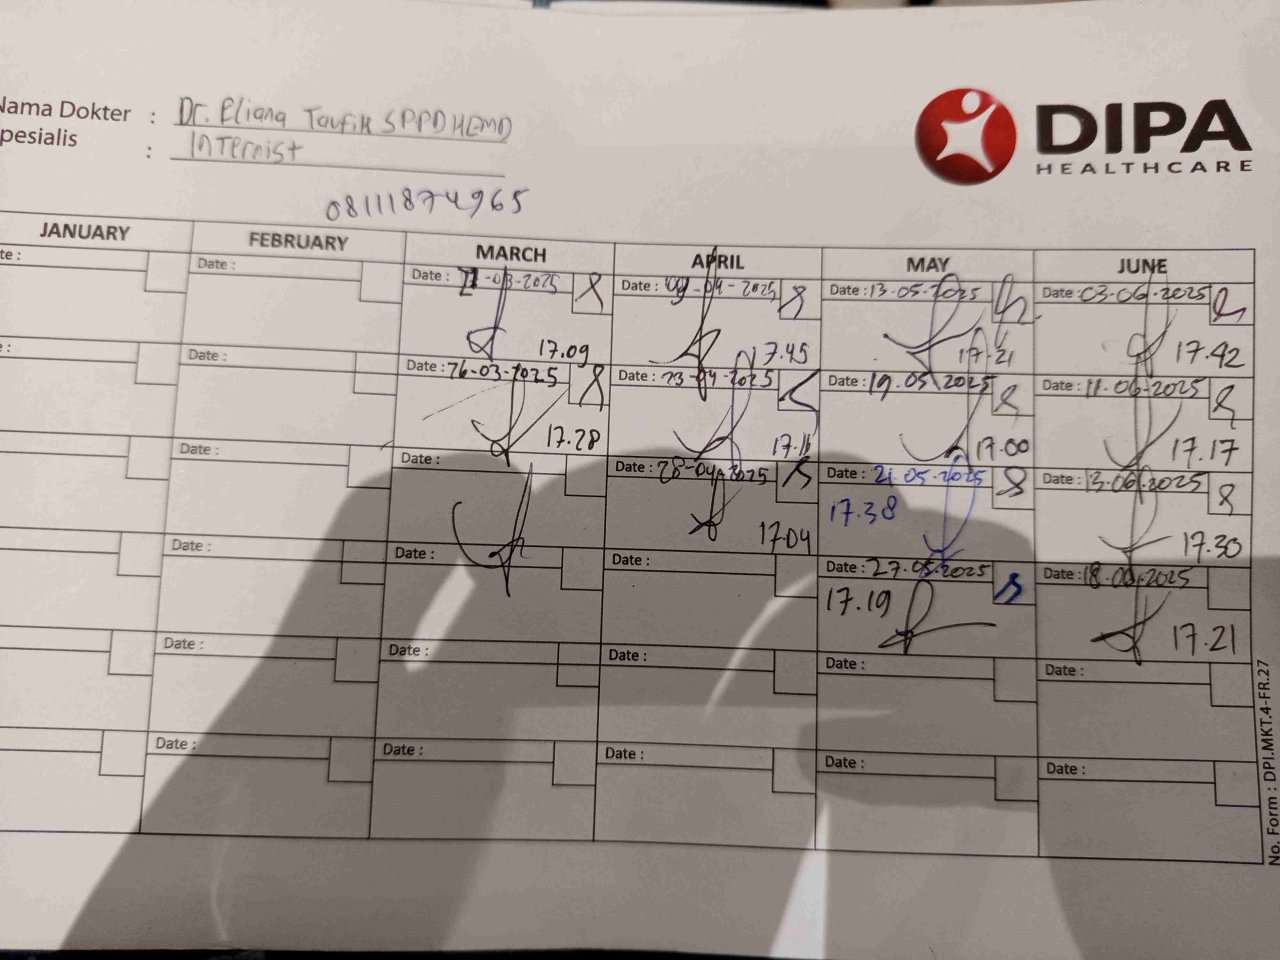 Nama Dokter : Dr. Eliana Taufik SPPD HEMD
pesialis : Internist
08111874965
DIPA
HEALTHCARE
JANUARY FEBRUARY MARCH APRIL MAY JUNE
te : Date : Date : -03-2025 Date : -04-2025 Date : 13.05.2025 Date : 03.06.2025
17.09 17.45 17.21 17.42
e : Date : Date : 26-03-2025 Date : 23-04-2025 Date : 19.05.2025 Date : 11.06.2025
17.28 17.00 17.17
Date : Date : Date : 28-04-2025 Date : 21.05.2025 Date : 13.06.2025
17.04 17.38 17.30
Date : Date : Date : Date : 27.05.2025 Date : 18.06.2025
17.19 17.21
Date : Date : Date : Date : Date :
Date : Date : Date : Date : Date :
No. Form : DPI.MKT.4-FR.27